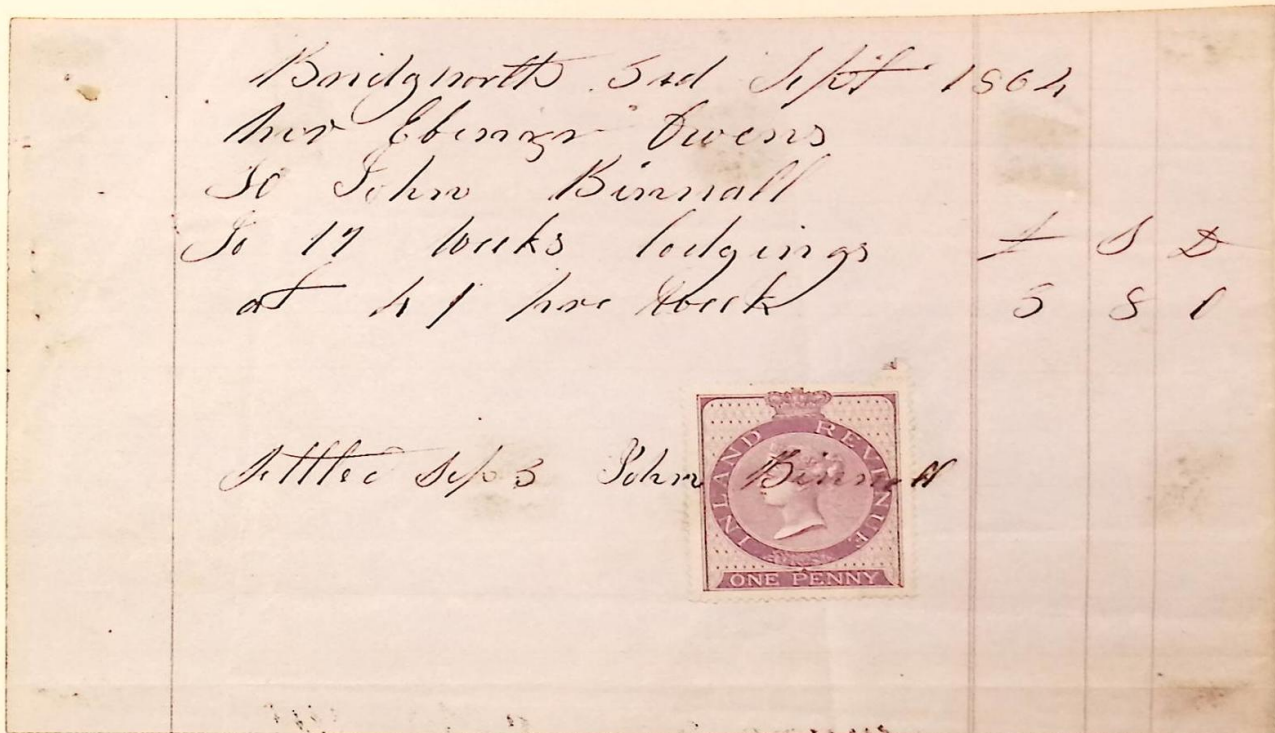 Bridgnorth 3rd Sept 1864
Mr Ebenzr Owens
To John Binnall
To 17 weeks lodgings £ S D
at 4/ pre Week 3 8 0
Settled Sep 3 John Binnall
INLAND REVENUE
ONE PENNY